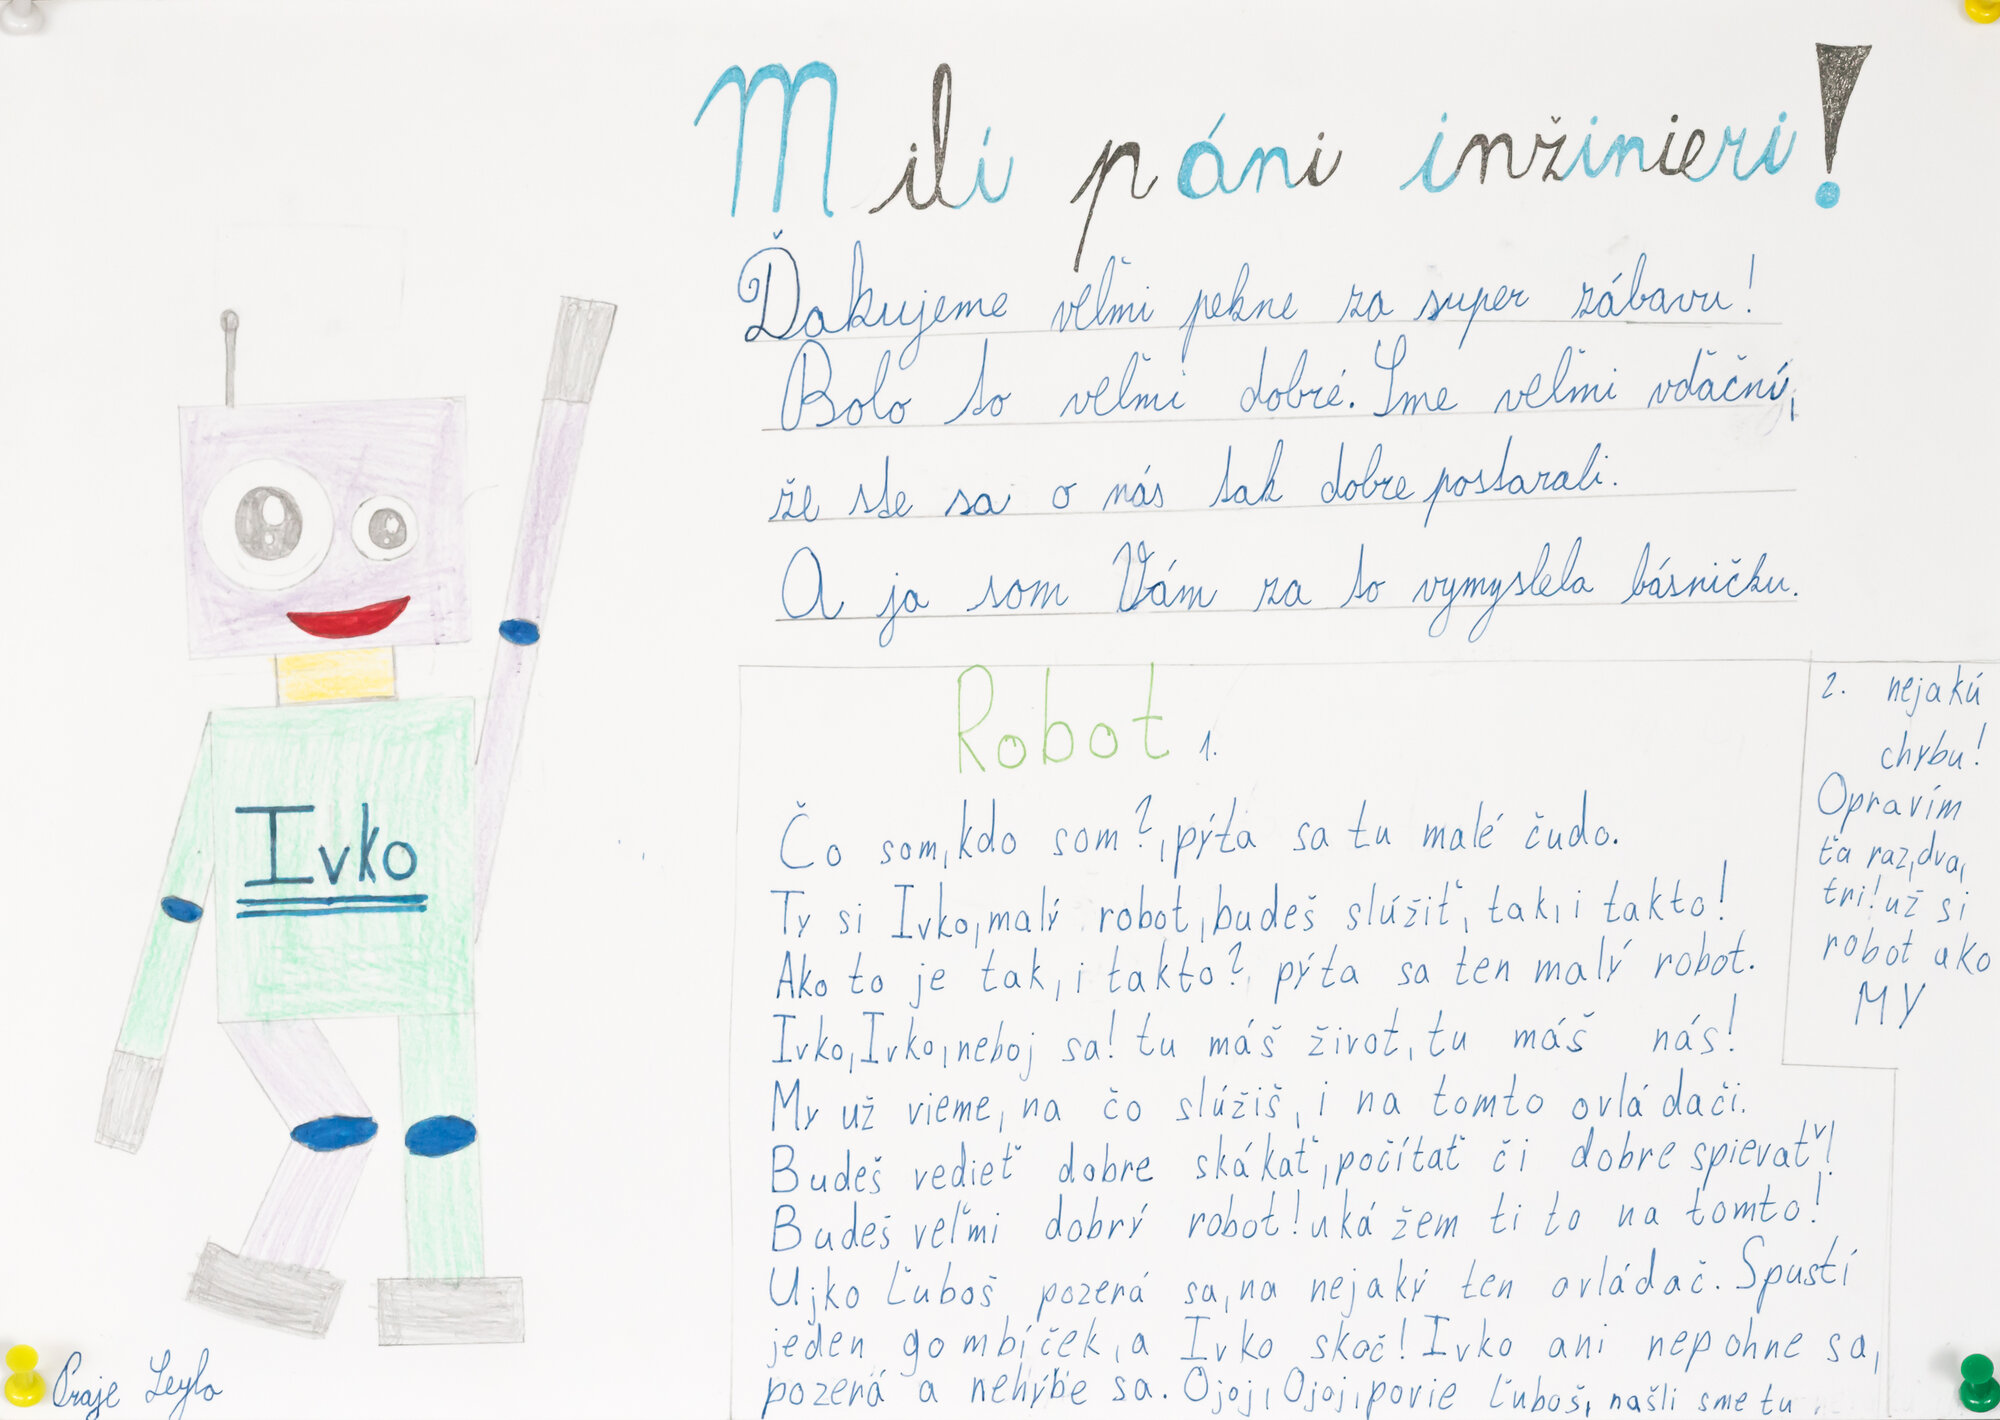 Milí páni inžinieri!
Ďakujeme veľmi pekne za super zábavu!
Bolo to veľmi dobré. Sme veľmi vďační,
že ste sa o nás tak dobre postarali.
A ja som Vám za to vymyslela básničku.
Robot 1.
Čo som, kdo som?, pýta sa tu malé čudo.
Ty si Ivko, malý robot, budeš slúžiť, tak, i takto!
Ako to je tak, i takto?, pýta sa ten malý robot.
Ivko, Ivko, neboj sa! tu máš život, tu máš nás!
My už vieme, na čo slúžiš, i na tomto ovládači.
Budeš vedieť dobre skákať, počítať či dobre spievať!
Budeš veľmi dobrý robot! ukážem ti to na tomto!
Ujko Ľuboš pozerá sa, na nejaký ten ovládač. Spustí
jeden gombíček, a Ivko skoč! Ivko ani nepohne sa,
pozerá a nehýbe sa. Ojoj, Ojoj, povie Ľuboš, našli sme tu
2. nejakú
chybu!
Opravím
ťa raz, dva,
tri! už si
robot ako
MY
Ivko
Praje Leyla